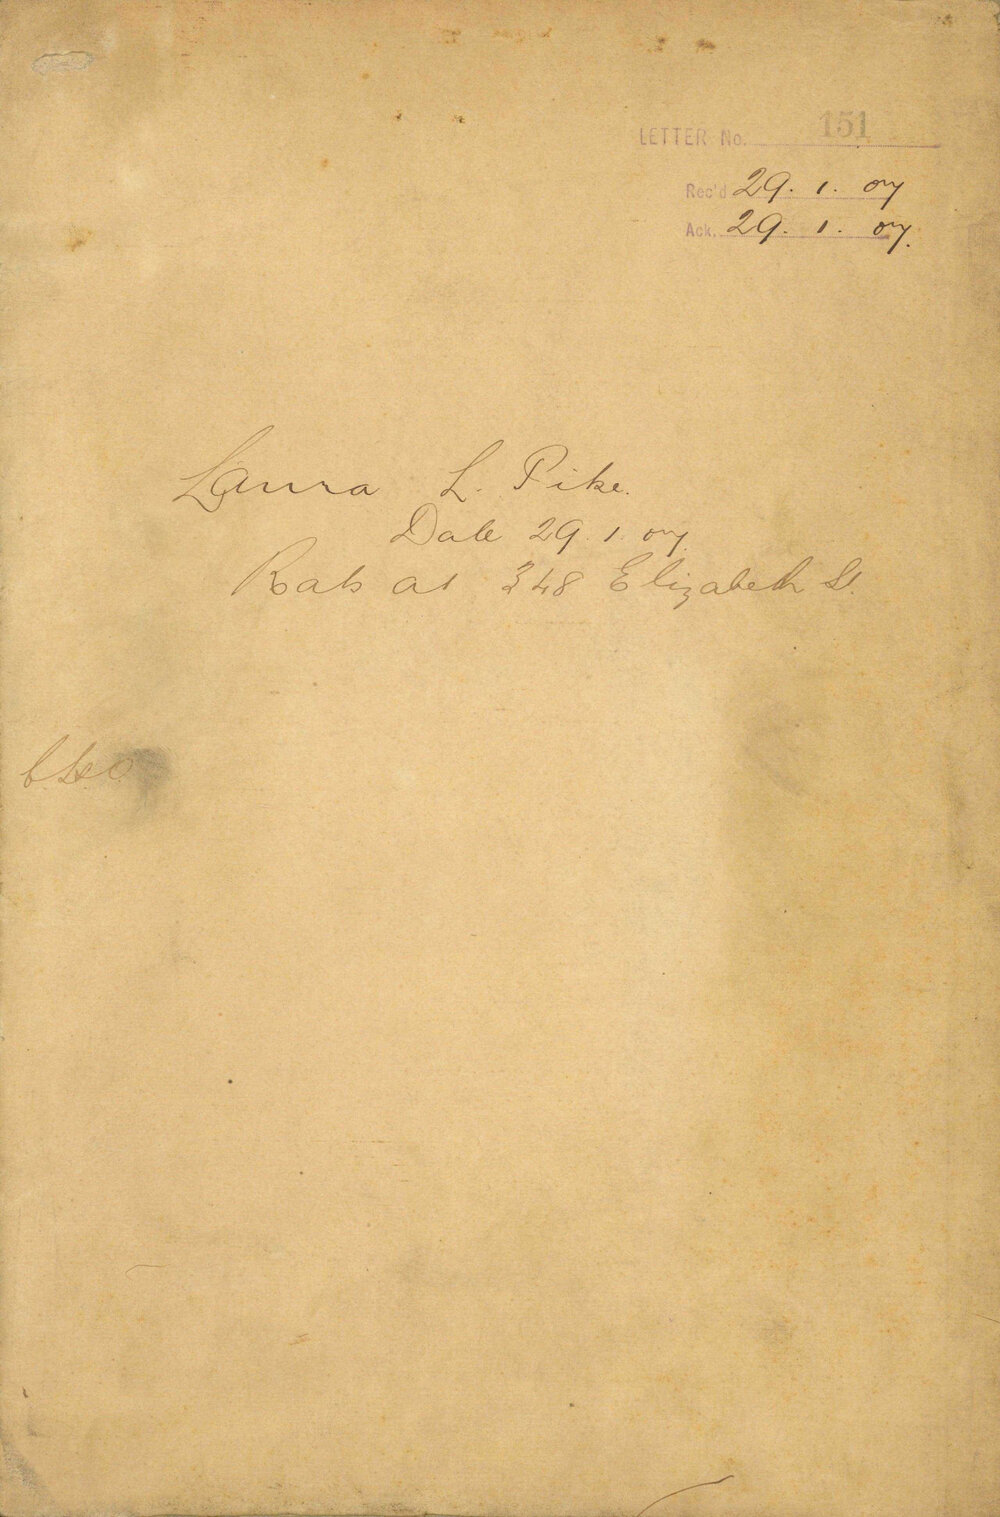 LETTER No. 151
Rec'd 29. 1. 07
Ack. 29. 1. 07.
Laura L. Pike.
Date 29. 1. 07.
Rats at 348 Elizabeth St.
C.H.O.